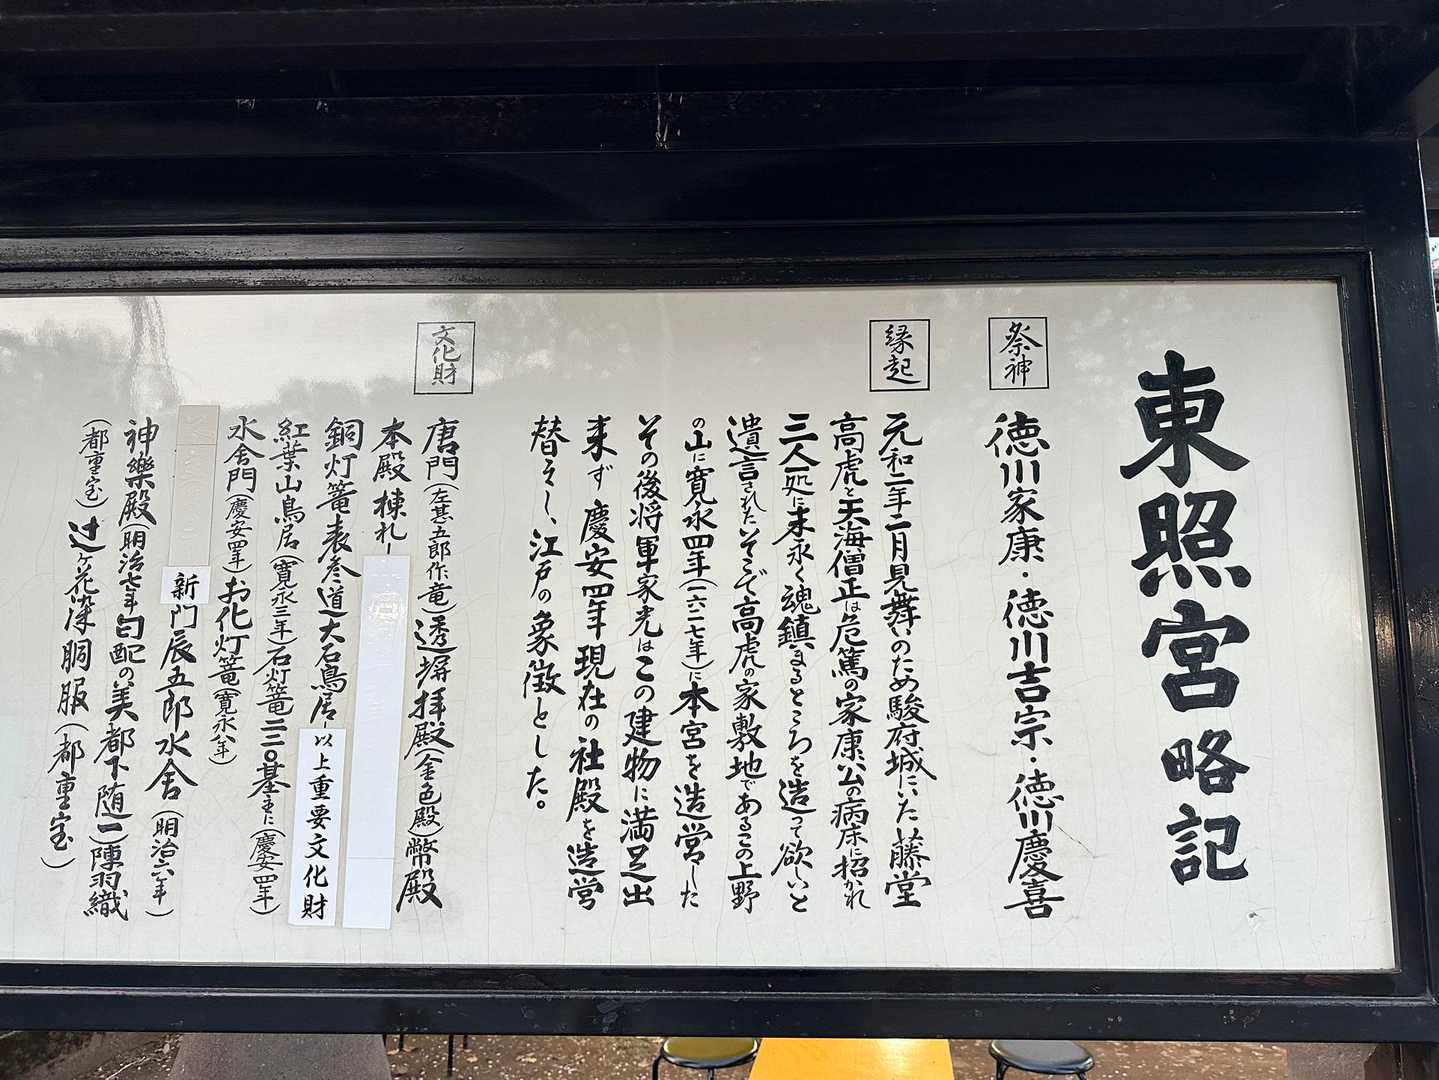 東照宮略記
祭神
徳川家康・徳川吉宗・徳川慶喜
縁起
元和二年二月見舞いのため駿府城にいた藤堂
高虎と天海僧正は危篤の家康公の病床に招かれ
三人処に末永く魂鎮まるところを造って欲しいと
遺言されたそこで高虎の家敷地であるこの上野
の山に寛永四年(一六二七年)に本宮を造営した
その後将軍家光はこの建物に満足出
来ず慶安四年現在の社殿を造営
替えし、江戸の象徴とした。
文化財
唐門(左甚五郎作竜)透塀拝殿(金色殿)幣殿
本殿棟札
銅灯篭表参道大石鳥居以上重要文化財
紅葉山鳥居(寛永三年)石灯篭二三〇基主に(慶安四年)
水舎門(慶安四年)お化灯篭(寛永八年)
新門辰五郎水舎(明治六年)
神樂殿(明治七年勾配の美都下随一)陣羽織
(都重宝)辻ヶ花染胴服(都重宝)